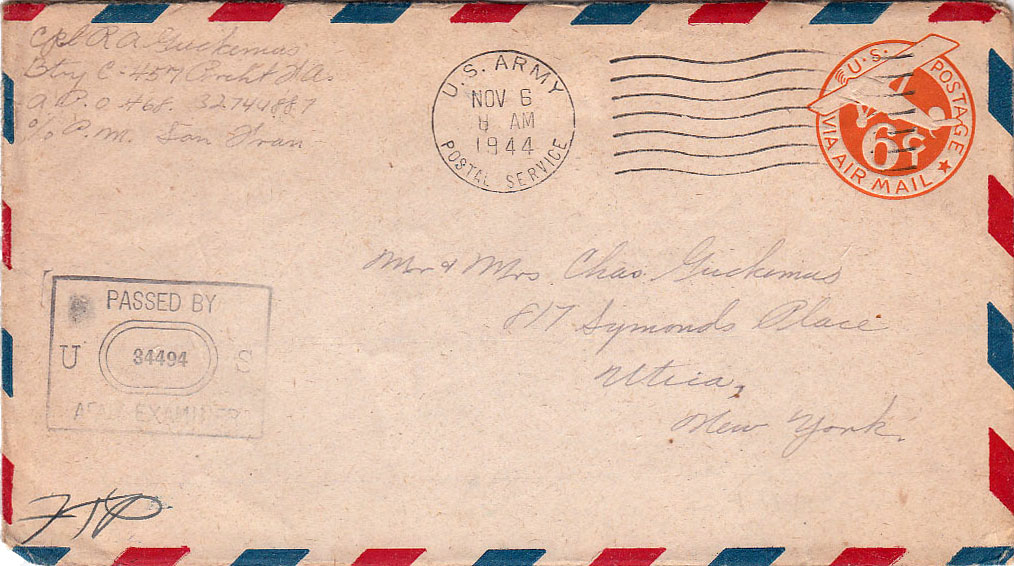 Cpl R A Guckemus
Btry C - 457
A.P.O #68. 32744887
c/o P.M. San Fran
U.S. ARMY
NOV 6
8 AM
1944
POSTAL SERVICE
U.S. POSTAGE
6¢
VIA AIR MAIL
Mr & Mrs Chas. Guckemus
817 Symonds Place
Utica,
New York.
PASSED BY
U 34494 S
ARMY EXAMINER